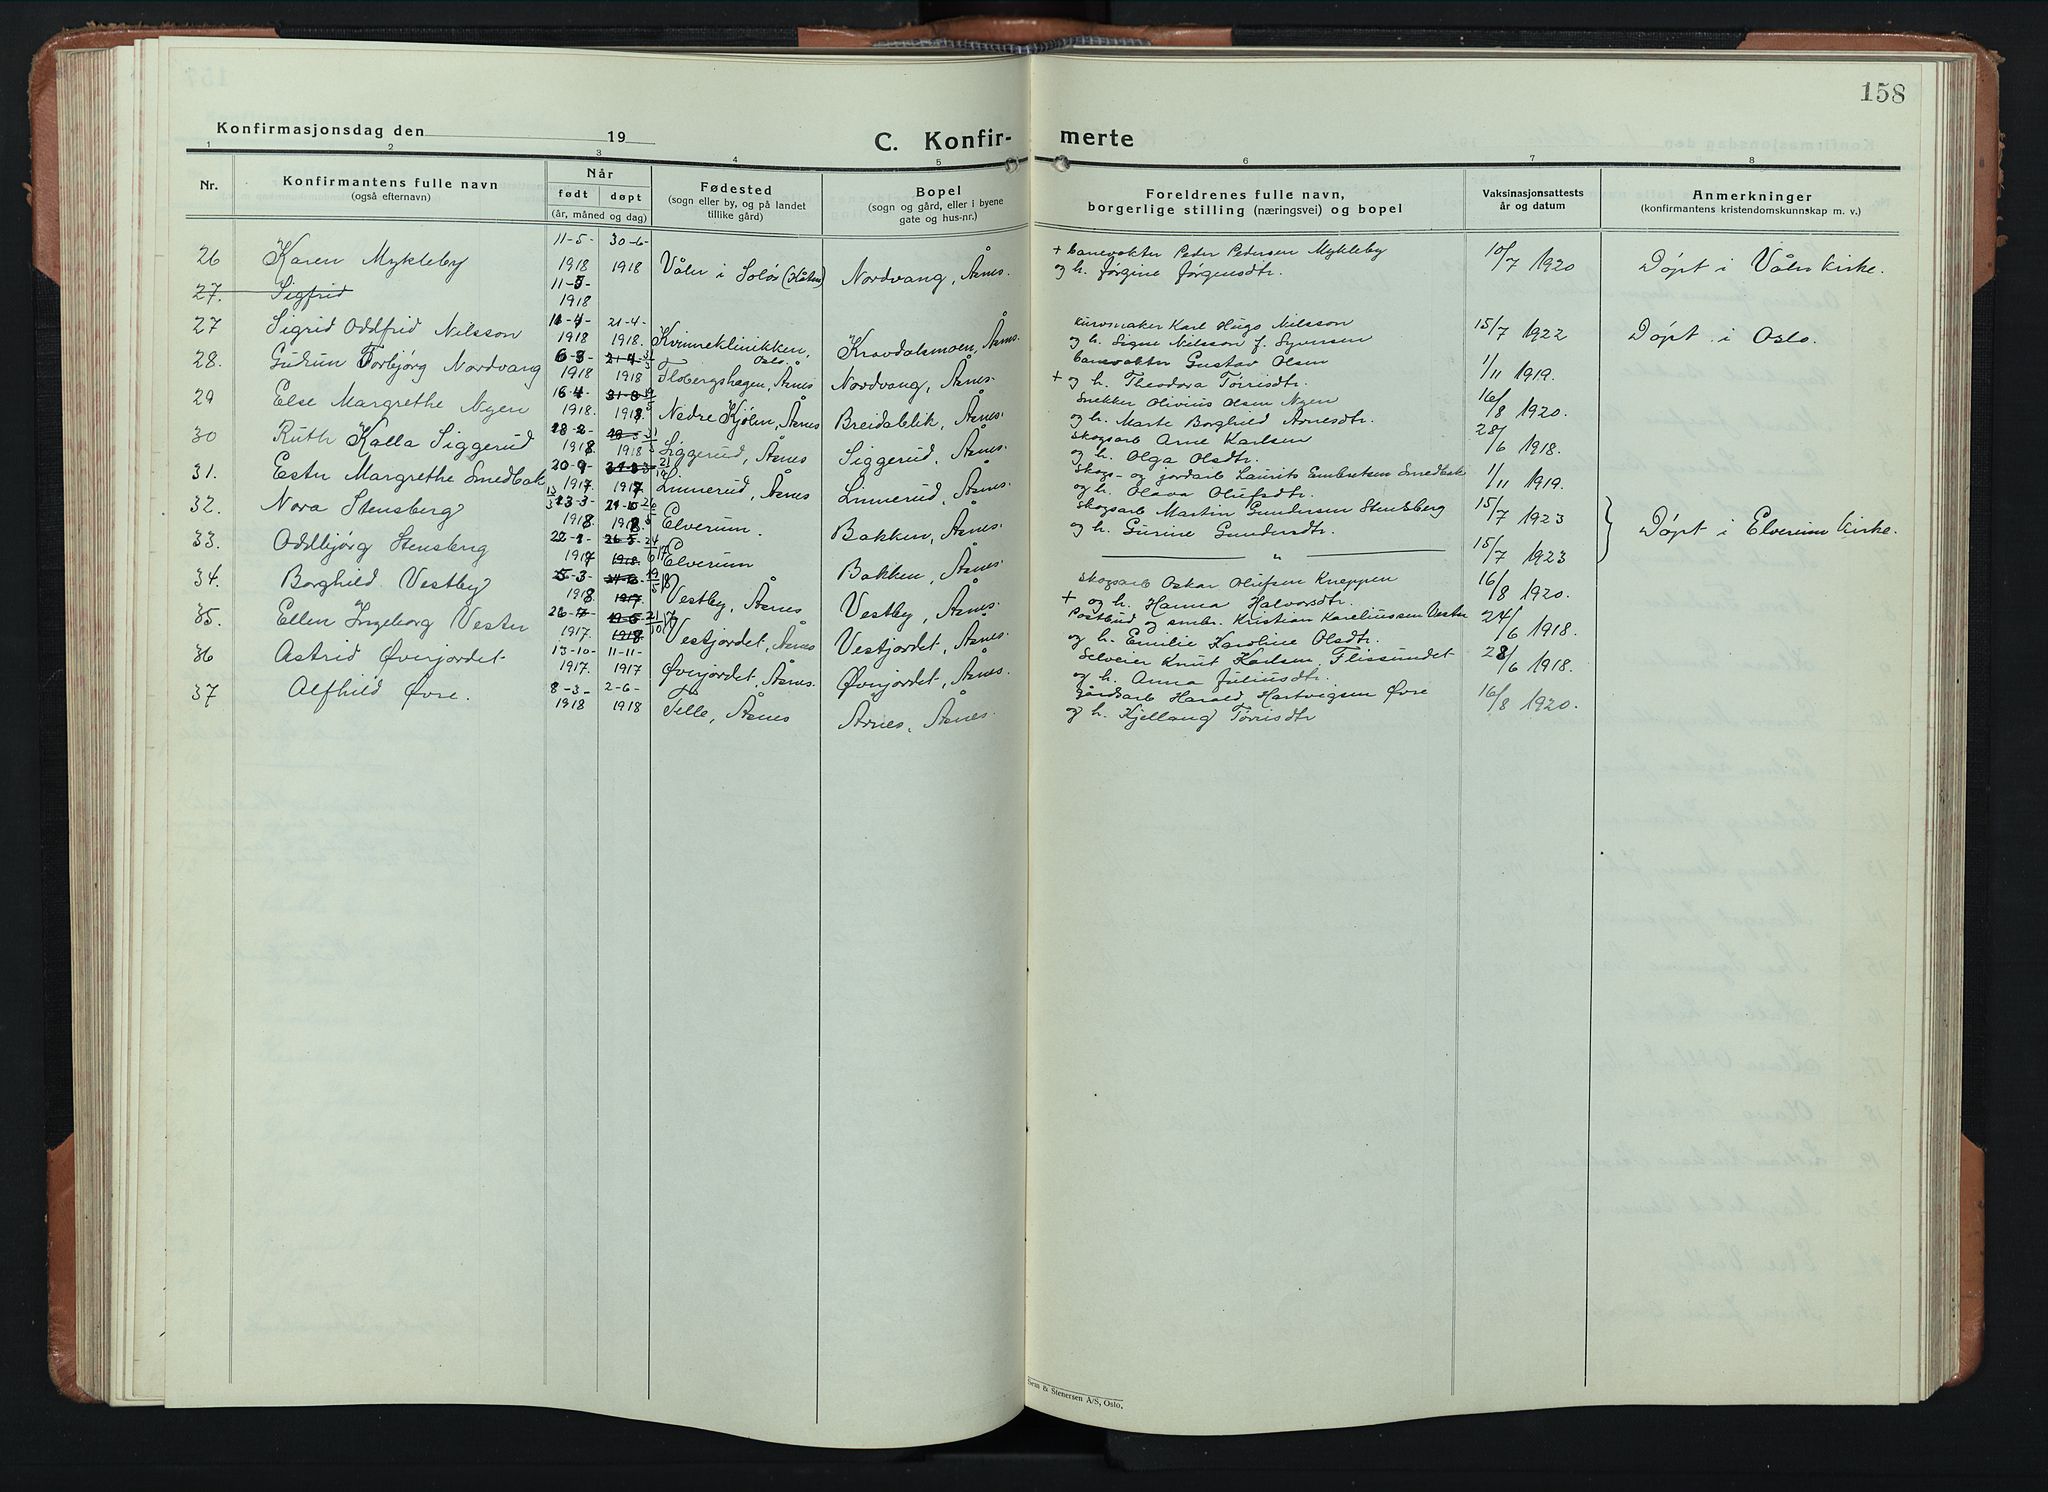 158
Konfirmasjonsdag den 19
C. Konfir- merte
1 2 3 4 5 6 7 8
Nr.
Konfirmantens fulle navn
(også efternavn)
Når
født døpt
(år, måned og dag)
Fødested
(sogn eller by, og på landet
tillike gård)
Bopel
(sogn og gård, eller i byene
gate og hus-nr.)
Foreldrenes fulle navn,
borgerlige stilling (næringsvei) og bopel
Vaksinasjonsattests
år og datum
Anmerkninger
(konfirmantens kristendomskunnskap m. v.)
11-5- 30-6-
26 Karen Mykleby 1918 1918 Våler i Solør Nordvang, Åsnes. + banevokter Peder Pedersen Mykleby 10/7 1920 Døpt i Våler kirke.
og h. Jørgine Jørgensdtr.
27. Sigfrid 11-5-
1918
27 Sigrid Oddfrid Nilsson 11-4- 21-4-
1918 1918. Kvinneklinikken, Oslo Kravdalsmoen, Åsnes. kurvmaker Karl Hugo Nilsson 15/7 1922 Døpt i Oslo.
og h. Signe Nilsson f. Syversen
28. Gudrun Torbjørg Nordvang 6-3- 31/3
1918 1918 Flobergshagen, Åsnes Nordvang, Åsnes. banevokter Gustav Olsen 1/11 1919.
+ og h. Theodora Tørrisdtr.
29 Else Margrethe Nyen 16-4-
1918. 1918 Nedre Kjølen, Åsnes Breidablik, Åsnes. Snekker Olivius Olsen Nyen 16/8 1920.
og h. Marte Borghild Arnesdtr.
30 Ruth Kalla Siggerud 28-2-
1918 1918 Siggerud, Åsnes Siggerud, Åsnes. skogsarb Arne Karlsen 28/6 1918.
og h. Olga Olsdtr.
31. Ester Margrethe Smedbak 20-9-
1917 1917 Linnerud, Åsnes Linnerud, Åsnes. Skogs- og jordarb Laurits Embretsen Smedbak 1/11 1919.
og h. Olava Olufsdtr.
32. Nora Stensberg
1918. 1918 Elverum. Bakken, Åsnes. skogsarb Martin Gundersen Stensberg 15/7 1923 Døpt i Elverum kirke.
og h. Gurine Gundersdtr.
33. Oddbjørg Stensberg
1917 1918 Elverum Bakken, Åsnes. " 15/7 1923
34. Borghild Vestby 5-3-
1918 1917 Vestby, Åsnes Vestby, Åsnes. skogsarb Oskar Olufsen Kneppen 16/8 1920.
+ og h. Hanna Halvorsdtr.
35. Ellen Ingeborg Vester
1917. 1918 Vestjordet, Åsnes Vestjordet, Åsnes. Postbud og smbr. Kristian Kareliussen Vester 24/6 1918.
og h. Emilie Karoline Olsdtr.
36 Astrid Øverjordet 13-10- 11-11-
1917. 1917 Øverjordet, Åsnes. Øverjordet, Åsnes. Selveier Knut Karlsen, Flissundet 28/6 1918.
og h. Anna Juliusdtr.
37 Alfhild Øvre. 8-3- 2-6-
1918 1918 Telle, Åsnes Arnes, Åsnes. gårdsarb Harald Hartvigsen Øvre 16/8 1920.
og h. Kjellaug Tørrisdtr
& Stenersen A/S, Oslo.